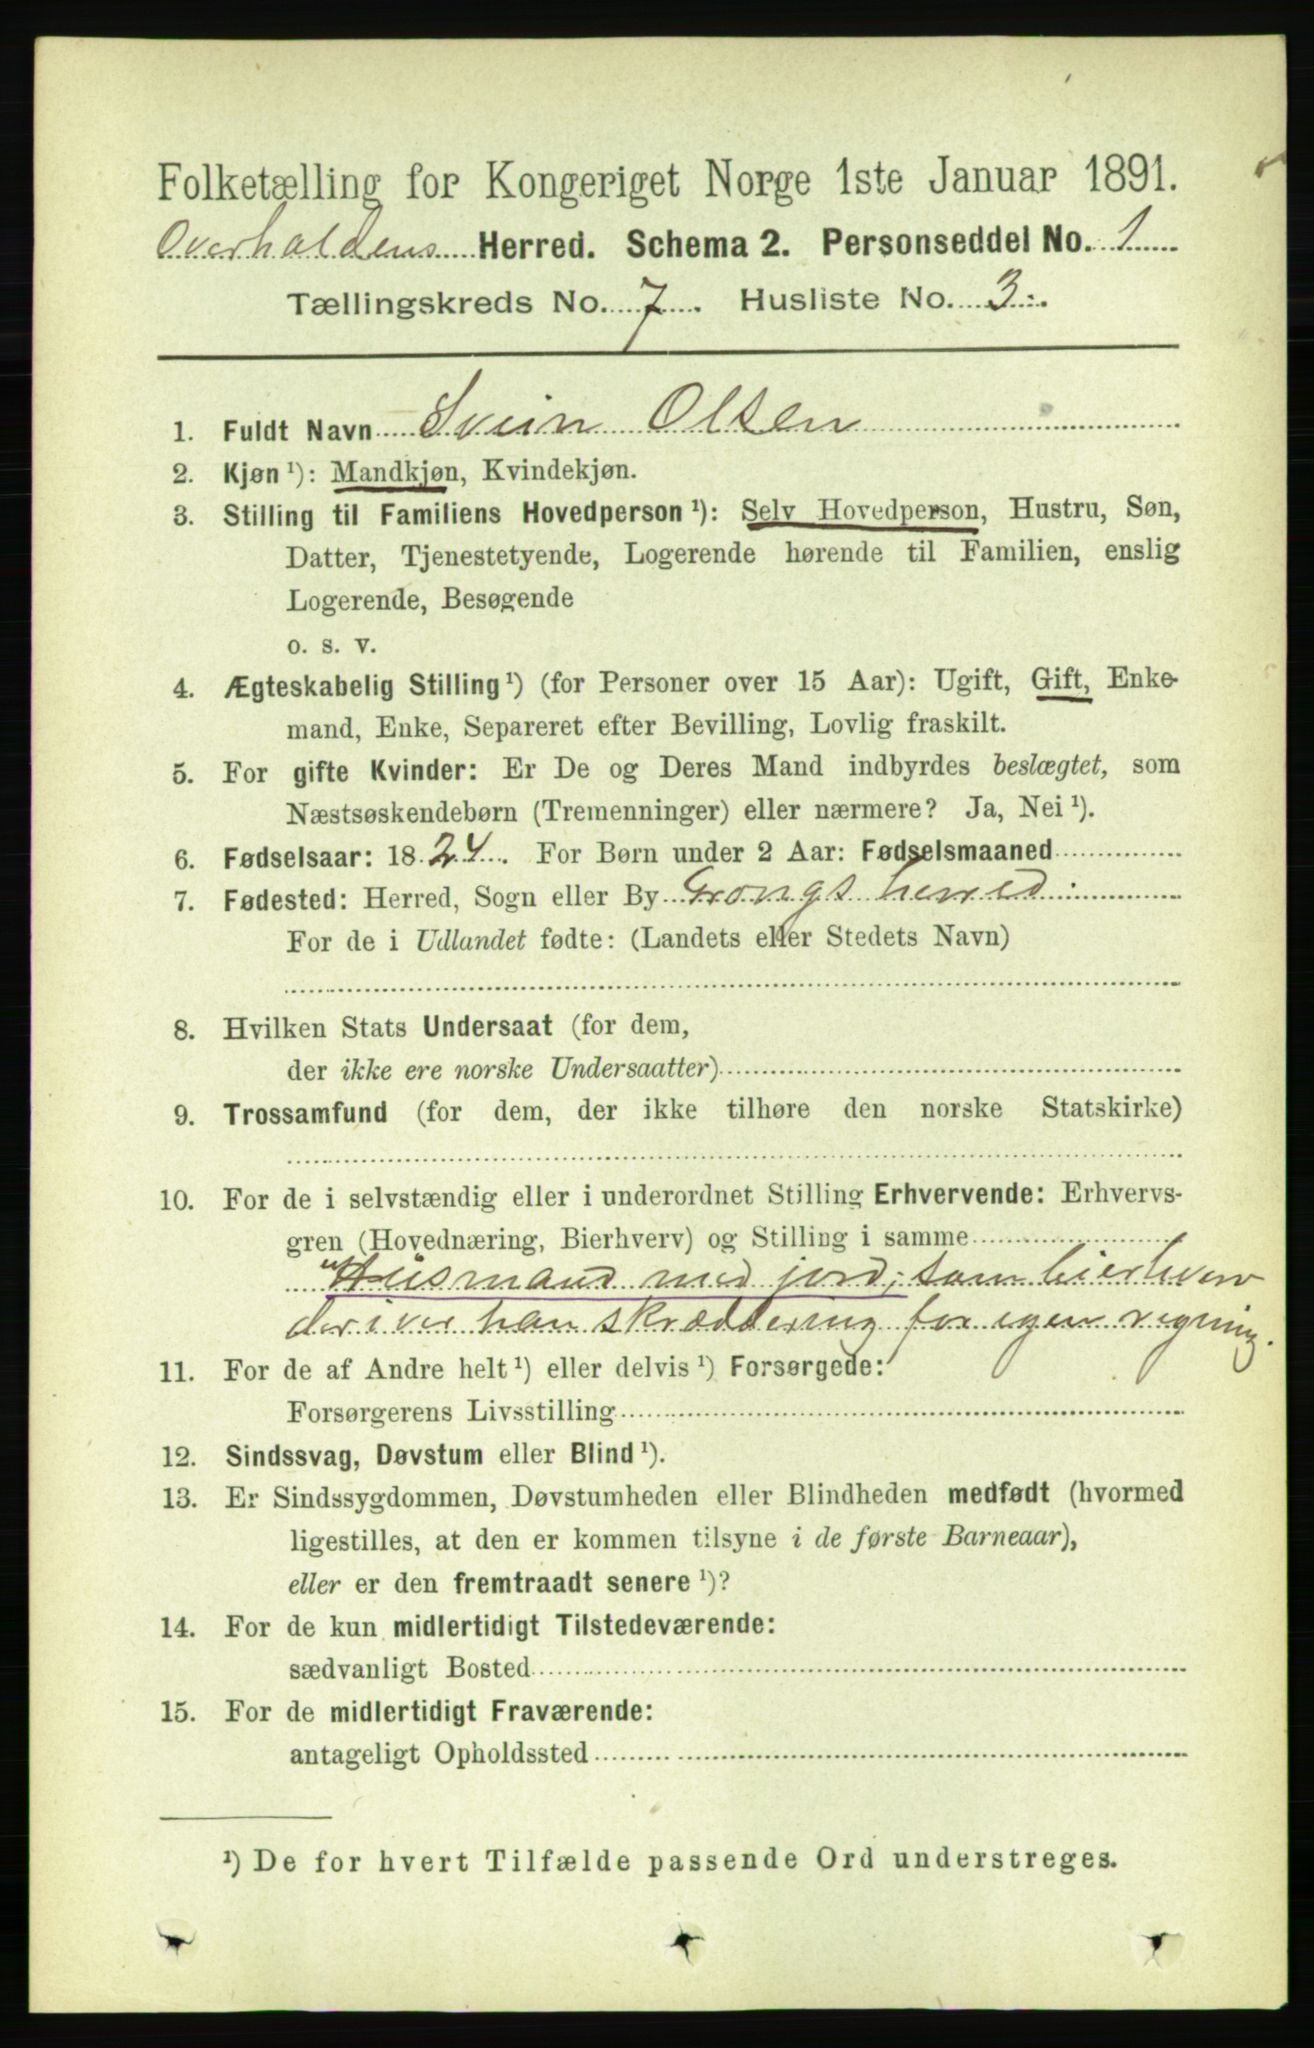 Folketælling for Kongeriget Norge 1ste Januar 1891.
Overhaldens Herred. Schema 2. Personseddel No. 1
Tællingskreds No. 7. Husliste No. 3.
1. Fuldt Navn Svein Olsen
2. Kjøn ¹): Mandkjøn, Kvindekjøn.
3. Stilling til Familiens Hovedperson ¹): Selv Hovedperson, Hustru, Søn,
Datter, Tjenestetyende, Logerende hørende til Familien, enslig
Logerende, Besøgende
o. s. v.
4. Ægteskabelig Stilling ¹) (for Personer over 15 Aar): Ugift, Gift, Enke-
mand, Enke, Separeret efter Bevilling, Lovlig fraskilt.
5. For gifte Kvinder: Er De og Deres Mand indbyrdes beslægtet, som
Næstsøskendebørn (Tremenninger) eller nærmere? Ja, Nei ¹).
6. Fødselsaar: 1824. For Børn under 2 Aar: Fødselsmaaned
7. Fødested: Herred, Sogn eller By Grongs herred
For de i Udlandet fødte: (Landets eller Stedets Navn)
8. Hvilken Stats Undersaat (for dem,
der ikke ere norske Undersaatter)
9. Trossamfund (for dem, der ikke tilhøre den norske Statskirke)
10. For de i selvstændig eller i underordnet Stilling Erhvervende: Erhvervs-
gren (Hovednæring, Bierhverv) og Stilling i samme
Husmand med jord; som bierhverv
deriver han skræddering for egen regning.
11. For de af Andre helt ¹) eller delvis ¹) Forsørgede:
Forsørgerens Livsstilling
12. Sindssvag, Døvstum eller Blind ¹).
13. Er Sindssygdommen, Døvstumheden eller Blindheden medfødt (hvormed
ligestilles, at den er kommen tilsyne i de første Barneaar),
eller er den fremtraadt senere ¹)?
14. For de kun midlertidigt Tilstedeværende:
sædvanligt Bosted
15. For de midlertidigt Fraværende:
antageligt Opholdssted
¹) De for hvert Tilfælde passende Ord understreges.